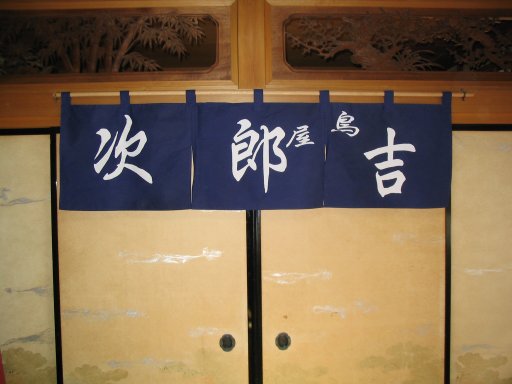 吉
鳥屋
郎
次